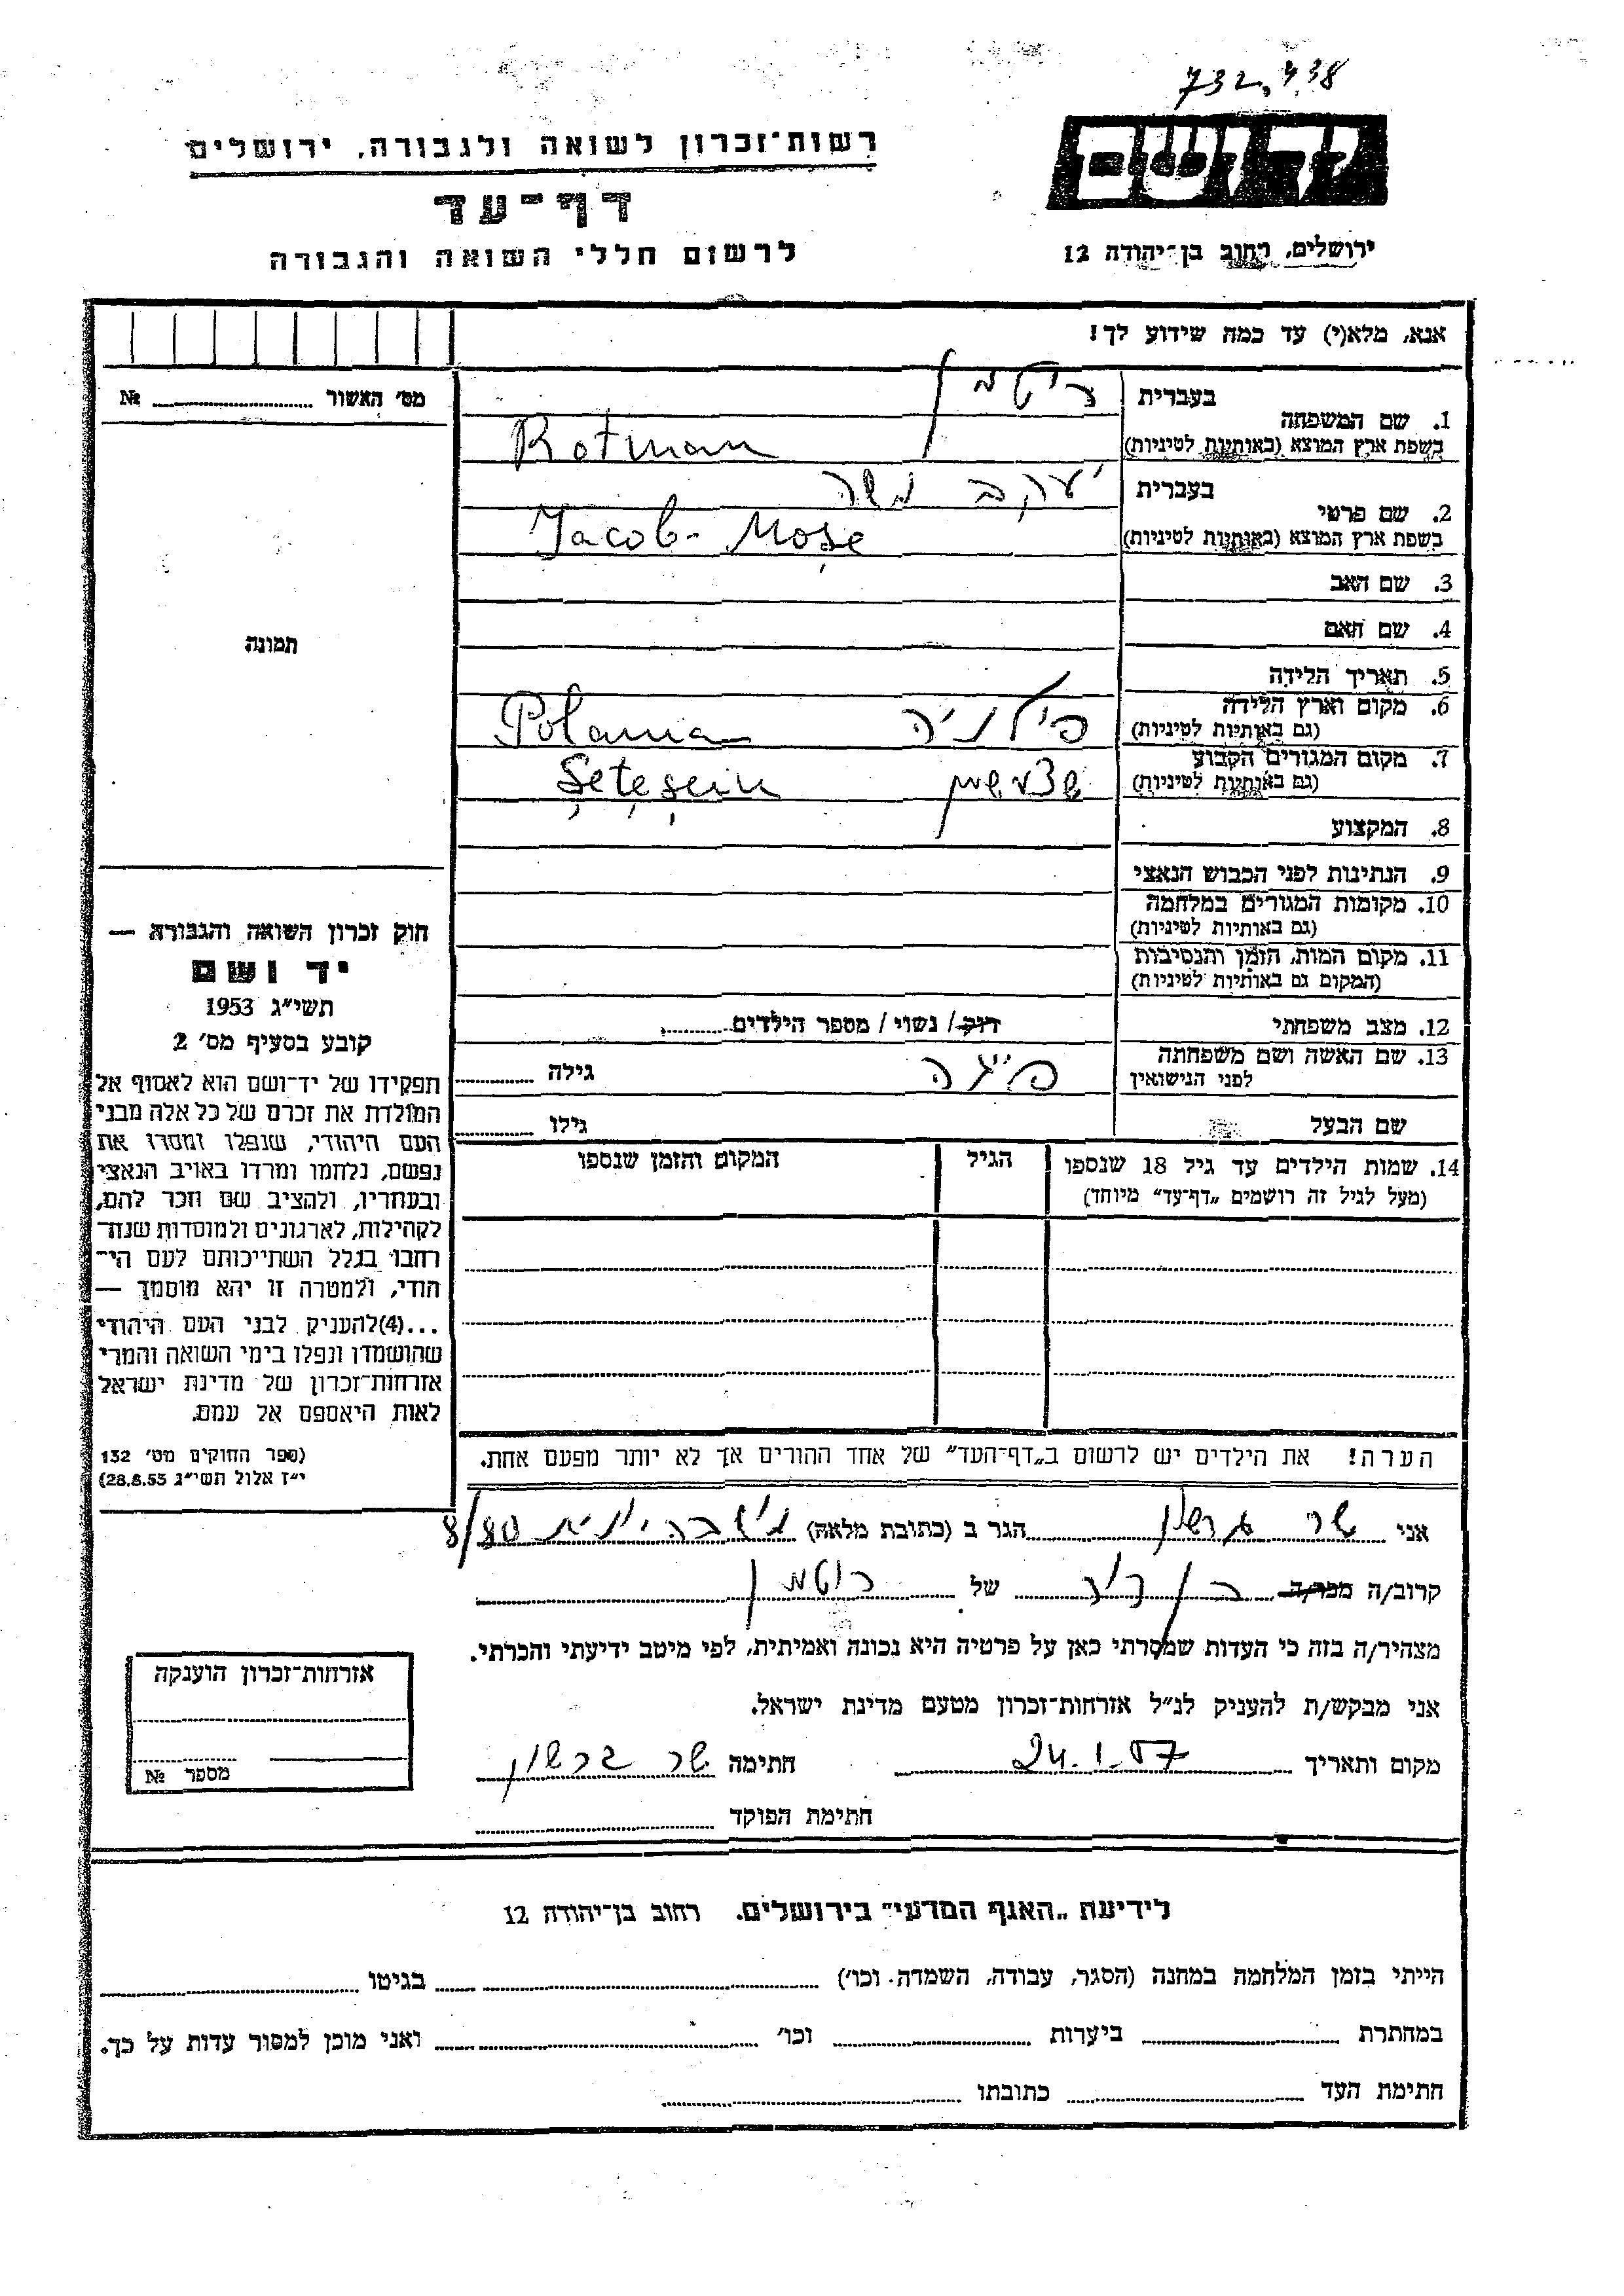 732,438
ידושם
רשות־זכרון לשואה ולגבורה, ירושלים
דף־עד
לרשום חללי השואה והגבורה
ירושלים, רחוב בן־יהודה 12
אנא, מלא(י) עד כמה שידוע לך!
מס׳ האשור № ........
1. שם המשפחה בעברית רוטמן
בשפת ארץ המוצא (באותיות לטיניות) Rotman
2. שם פרטי בעברית יעקב משה
בשפת ארץ המוצא (באותיות לטיניות) Jacob- Moșe
3. שם האב
4. שם האם
תמונה
5. תאריך הלידה
6. מקום וארץ הלידה (גם באותיות לטיניות) פולניה Polania
7. מקום המגורים הקבוע (גם באותיות לטיניות) Șețeșein
8. המקצוע
9. הנתינות לפני הכבוש הנאצי
10. מקומות המגורים במלחמה (גם באותיות לטיניות)
11. מקום המות, הזמן והנסיבות (המקום גם באותיות לטיניות)
12. מצב משפחתי רווק / נשוי / מספר הילדים........
13. שם האשה ושם משפחתה לפני הנישואין פייגה גילה ........
שם הבעל גילו ........
14. שמות הילדים עד גיל 18 שנספו (מעל לגיל זה רושמים „דף־עד״ מיוחד) הגיל המקום והזמן שנספו
הערה! את הילדים יש לרשום ב„דף־העד״ של אחד ההורים אך לא יותר מפעם אחת.
חוק זכרון השואה והגבורה —
יד ושם
תשי״ג 1953
קובע בסעיף מס׳ 2
תפקידו של יד־ושם הוא לאסוף אל
המולדת את זכרם של כל אלה מבני
העם היהודי, שנפלו ומסרו את
נפשם, נלחמו ומרדו באויב הנאצי
ובעוזריו, ולהציב שם וזכר להם,
לקהילות, לארגונים ולמוסדות שנח־
רבו בגלל השתייכותם לעם הי־
הודי, ולמטרה זו יהא מוסמך —
...(4) להעניק לבני העם היהודי
שהושמדו ונפלו בימי השואה והמרי
אזרחות־זכרון של מדינת ישראל
לאות היאספם אל עמם.
(ספר החוקים מס׳ 132
י״ז אלול תשי״ג 28.8.53)
אני שר גרשון הגר ב (כתובת מלאה) 8/80
קרוב/ה מכר/ה בן דוד של רוטמן
מצהיר/ה בזה כי העדות שמסרתי כאן על פרטיה היא נכונה ואמיתית, לפי מיטב ידיעתי והכרתי.
אני מבקש/ת להעניק לנ״ל אזרחות־זכרון מטעם מדינת ישראל.
מקום ותאריך 24.1.57 חתימה שר גרשון
חתימת הפוקד
אזרחות־זכרון הוענקה
מספר №
לידיעת „האגף המדעי״ בירושלים. רחוב בן־יהודה 12
הייתי בזמן המלחמה במחנה (הסגר, עבודה, השמדה וכו׳) ........ בגיטו ........
במחתרת ........ ביערות ........ וכו׳ ........ ואני מוכן למסור עדות על כך.
חתימת העד ........ כתובתו ........